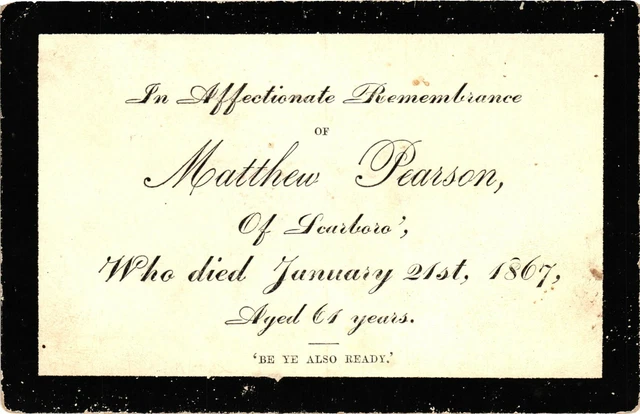 In Affectionate Remembrance
OF
Matthew Pearson,
Of Scarboro',
Who died January 21st, 1867,
Aged 61 years.
'BE YE ALSO READY.'